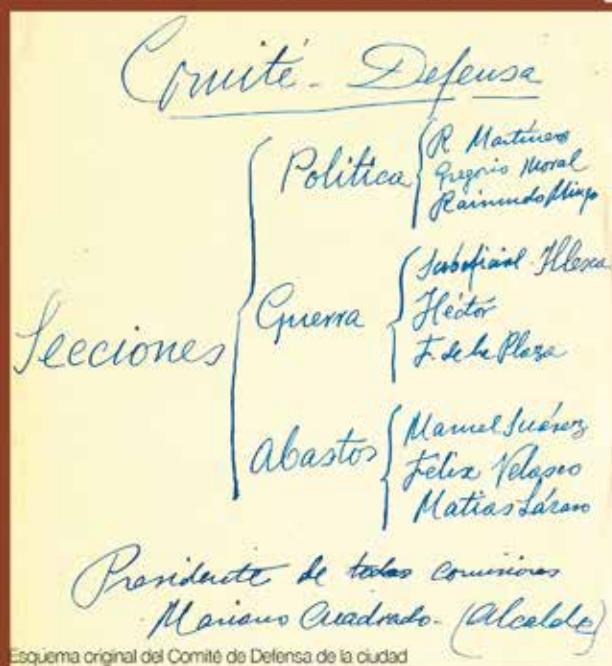 Comité - Defensa
Secciones
Politica
R Martinez
Gregorio Moral
Raimundo Mingo
Guerra
Suboficial Illesca
Héctor
F. de la Plaza
Abastos
Manuel Suárez
Félix Velasco
Matias Lázaro
Presidente de todas comisiones
Mariano Cuadrado - (Alcalde)
Esquema original del Comité de Defensa de la ciudad